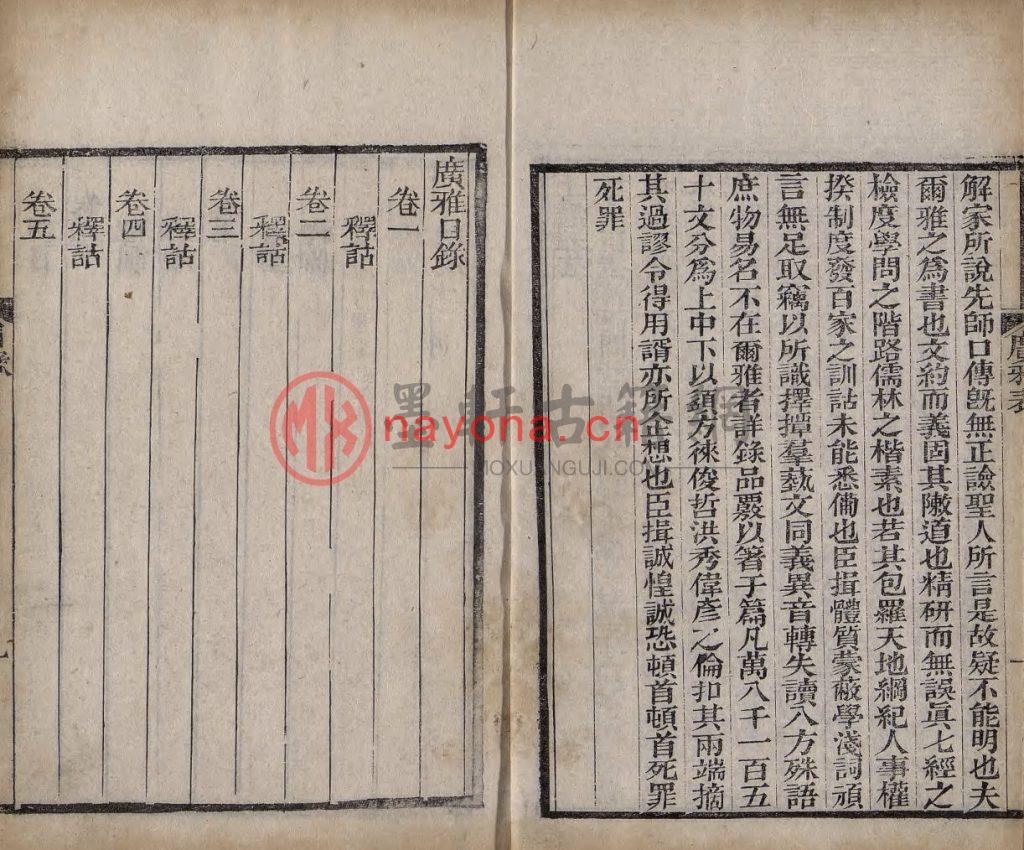 廣雅表
解家所說先師口傳旣無正譣聖人所言是故疑不能明也夫
爾雅之爲書也文約而義固其敶道也精研而無誤眞七經之
檢度學問之階路儒林之楷素也若其包羅天地綱紀人事權
揆制度發百家之訓詁未能悉備也臣揖體質蒙蔽學淺詞頑
言無足取竊以所識擇撢羣蓺文同義異音轉失讀八方殊語
庶物易名不在爾雅者詳錄品覈以箸于篇凡萬八千一百五
十文分爲上中下以䫇方徠俊哲洪秀偉彥之倫扣其兩端摘
其過謬令得用諝亦所企想也臣揖誠惶誠恐頓首頓首死罪
死罪
廣雅目錄
卷一
釋詁
卷二
釋詁
卷三
釋詁
卷四
釋詁
卷五
目錄
墨軒古籍網
nayona.cn
MOXUANGUJI.COM